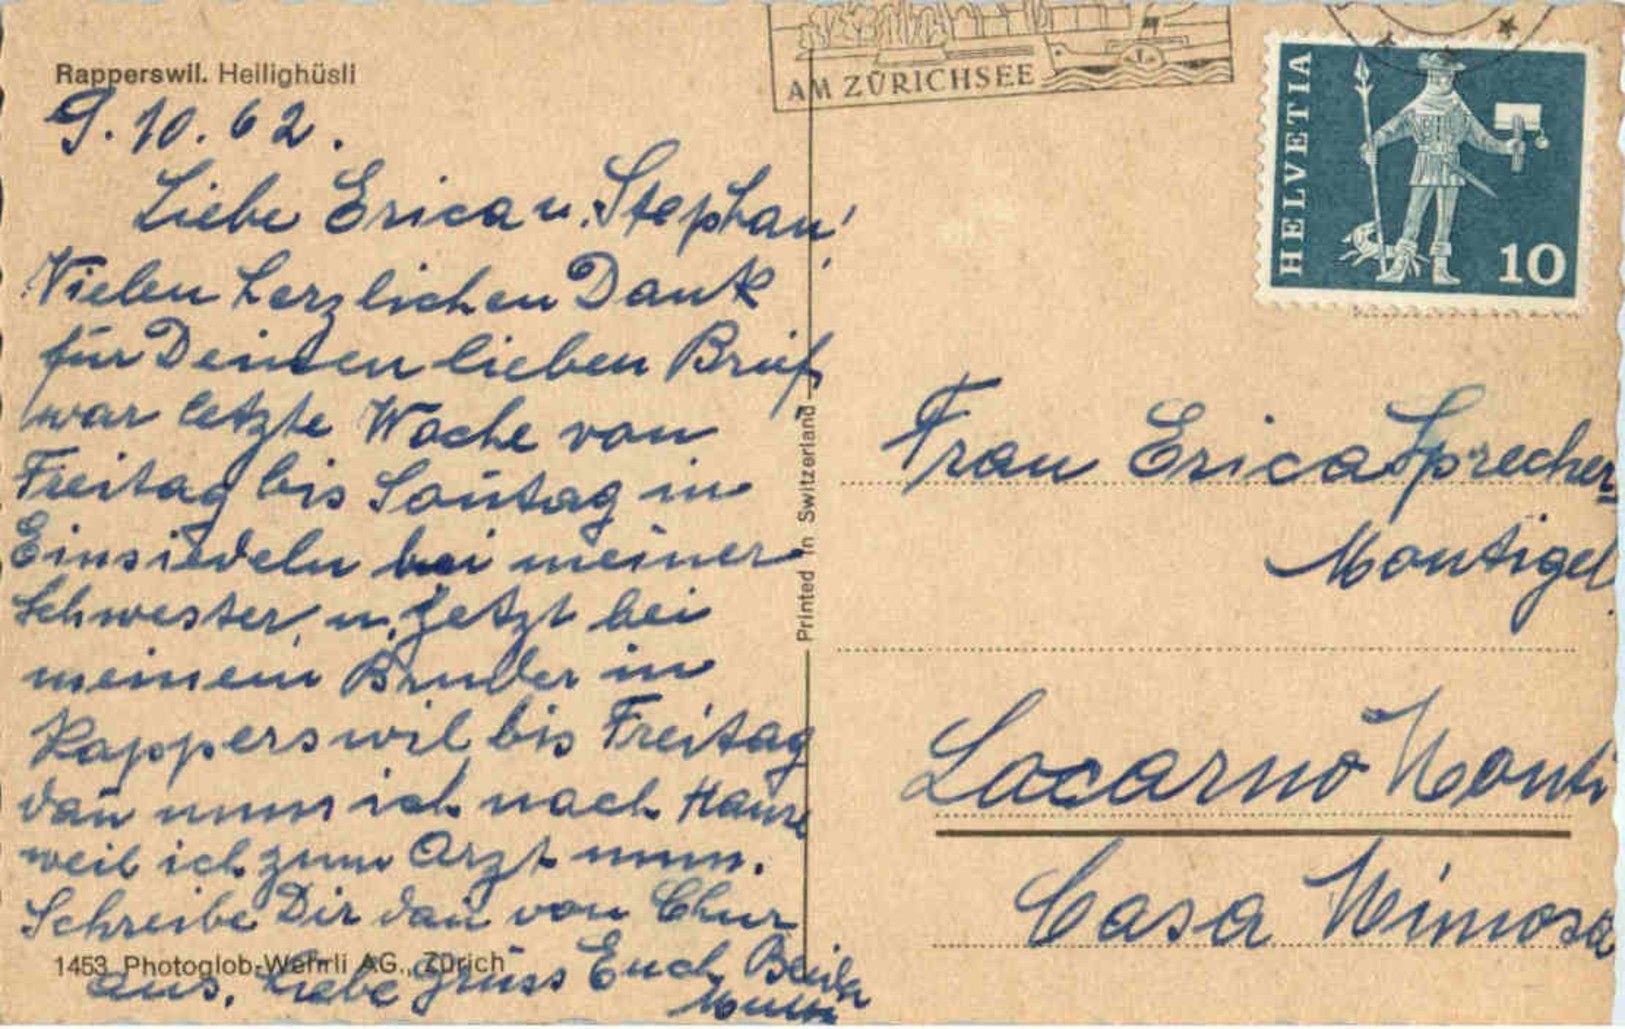 Rapperswil. Heilighüsli
9.10.62.
Liebe Erica u. Stephan!
Vielen herzlichen Dank
für Deinen lieben Brief
war letzte Woche von
Freitag bis Soñtag in
Einsiedeln bei meiner
Schwester, u. jetzt bei
meinem Bruder in
Rapperswil bis Freitag
dañ muss ich nach Hause
weil ich zum Arzt muss.
Schreibe Dir dañ von Chur
aus. Liebe Grüss Euch Beide
Mutti
1453 Photoglob-Wehrli AG., Zürich
Printed in Switzerland
AM ZÜRICHSEE
HELVETIA
10
Frau Erica Sprecher-
Montigel
Locarno Monti
Casa Mimosa